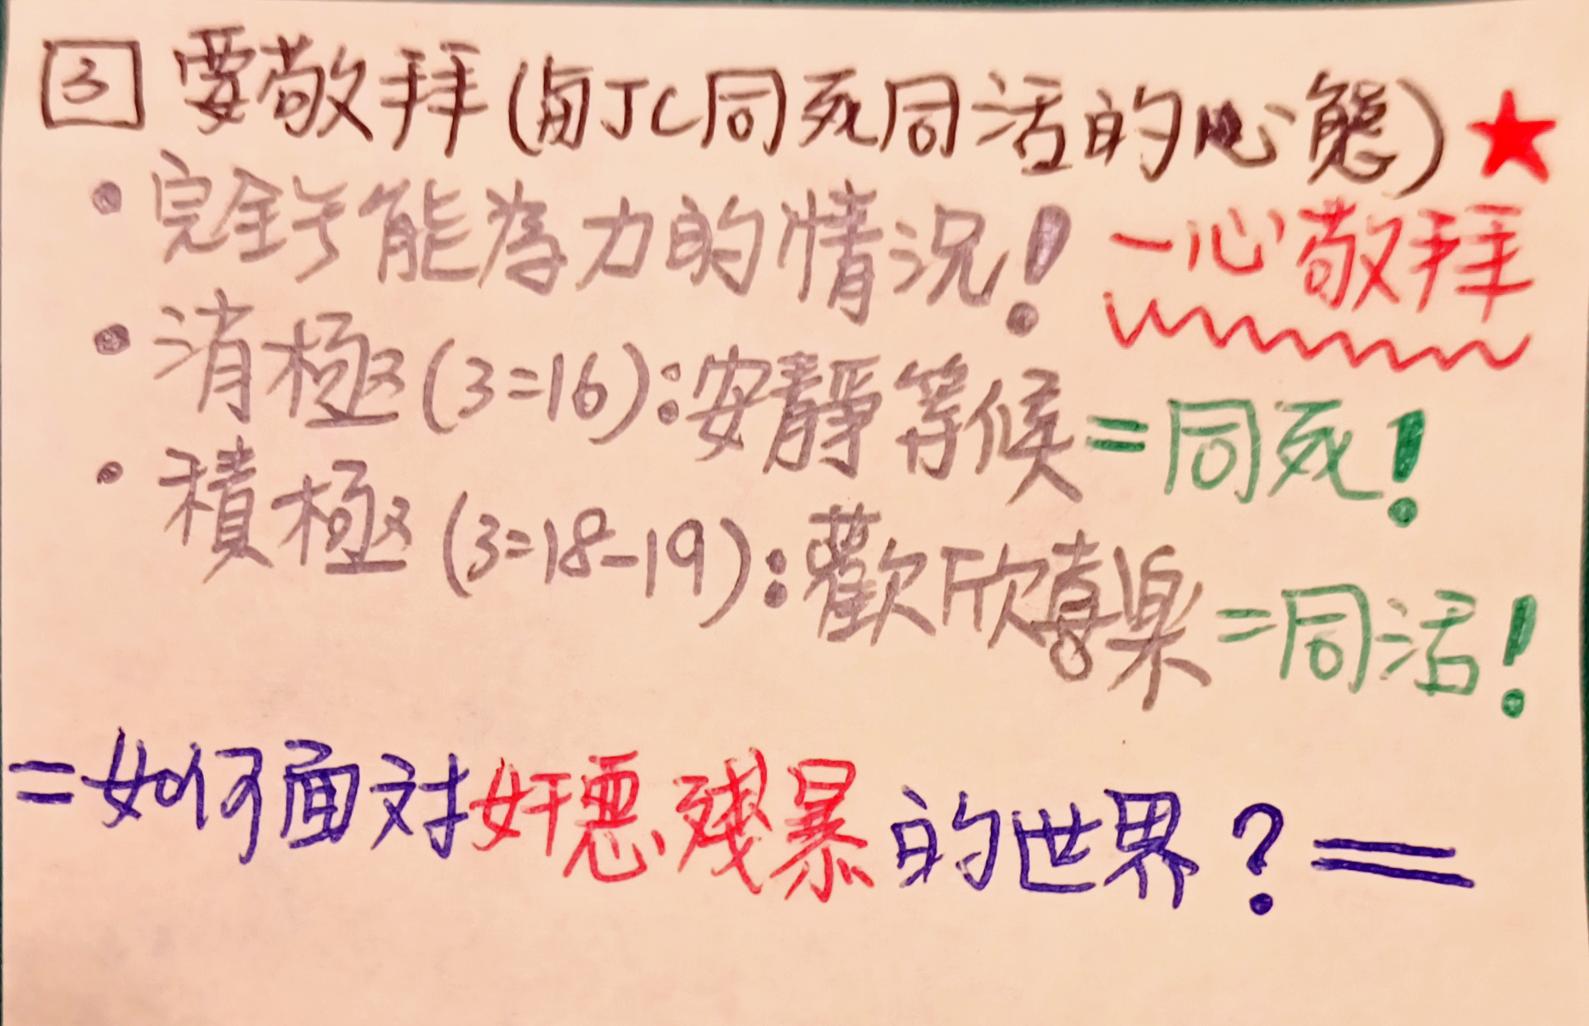 3 要敬拜(與JC同死同活的心態)★
• 完全无能为力的情況! 一心敬拜
• 消極(3:16):安静等候=同死!
• 積極(3:18-19):歡欣喜樂=同活!
=如何面对奸惡残暴的世界?=